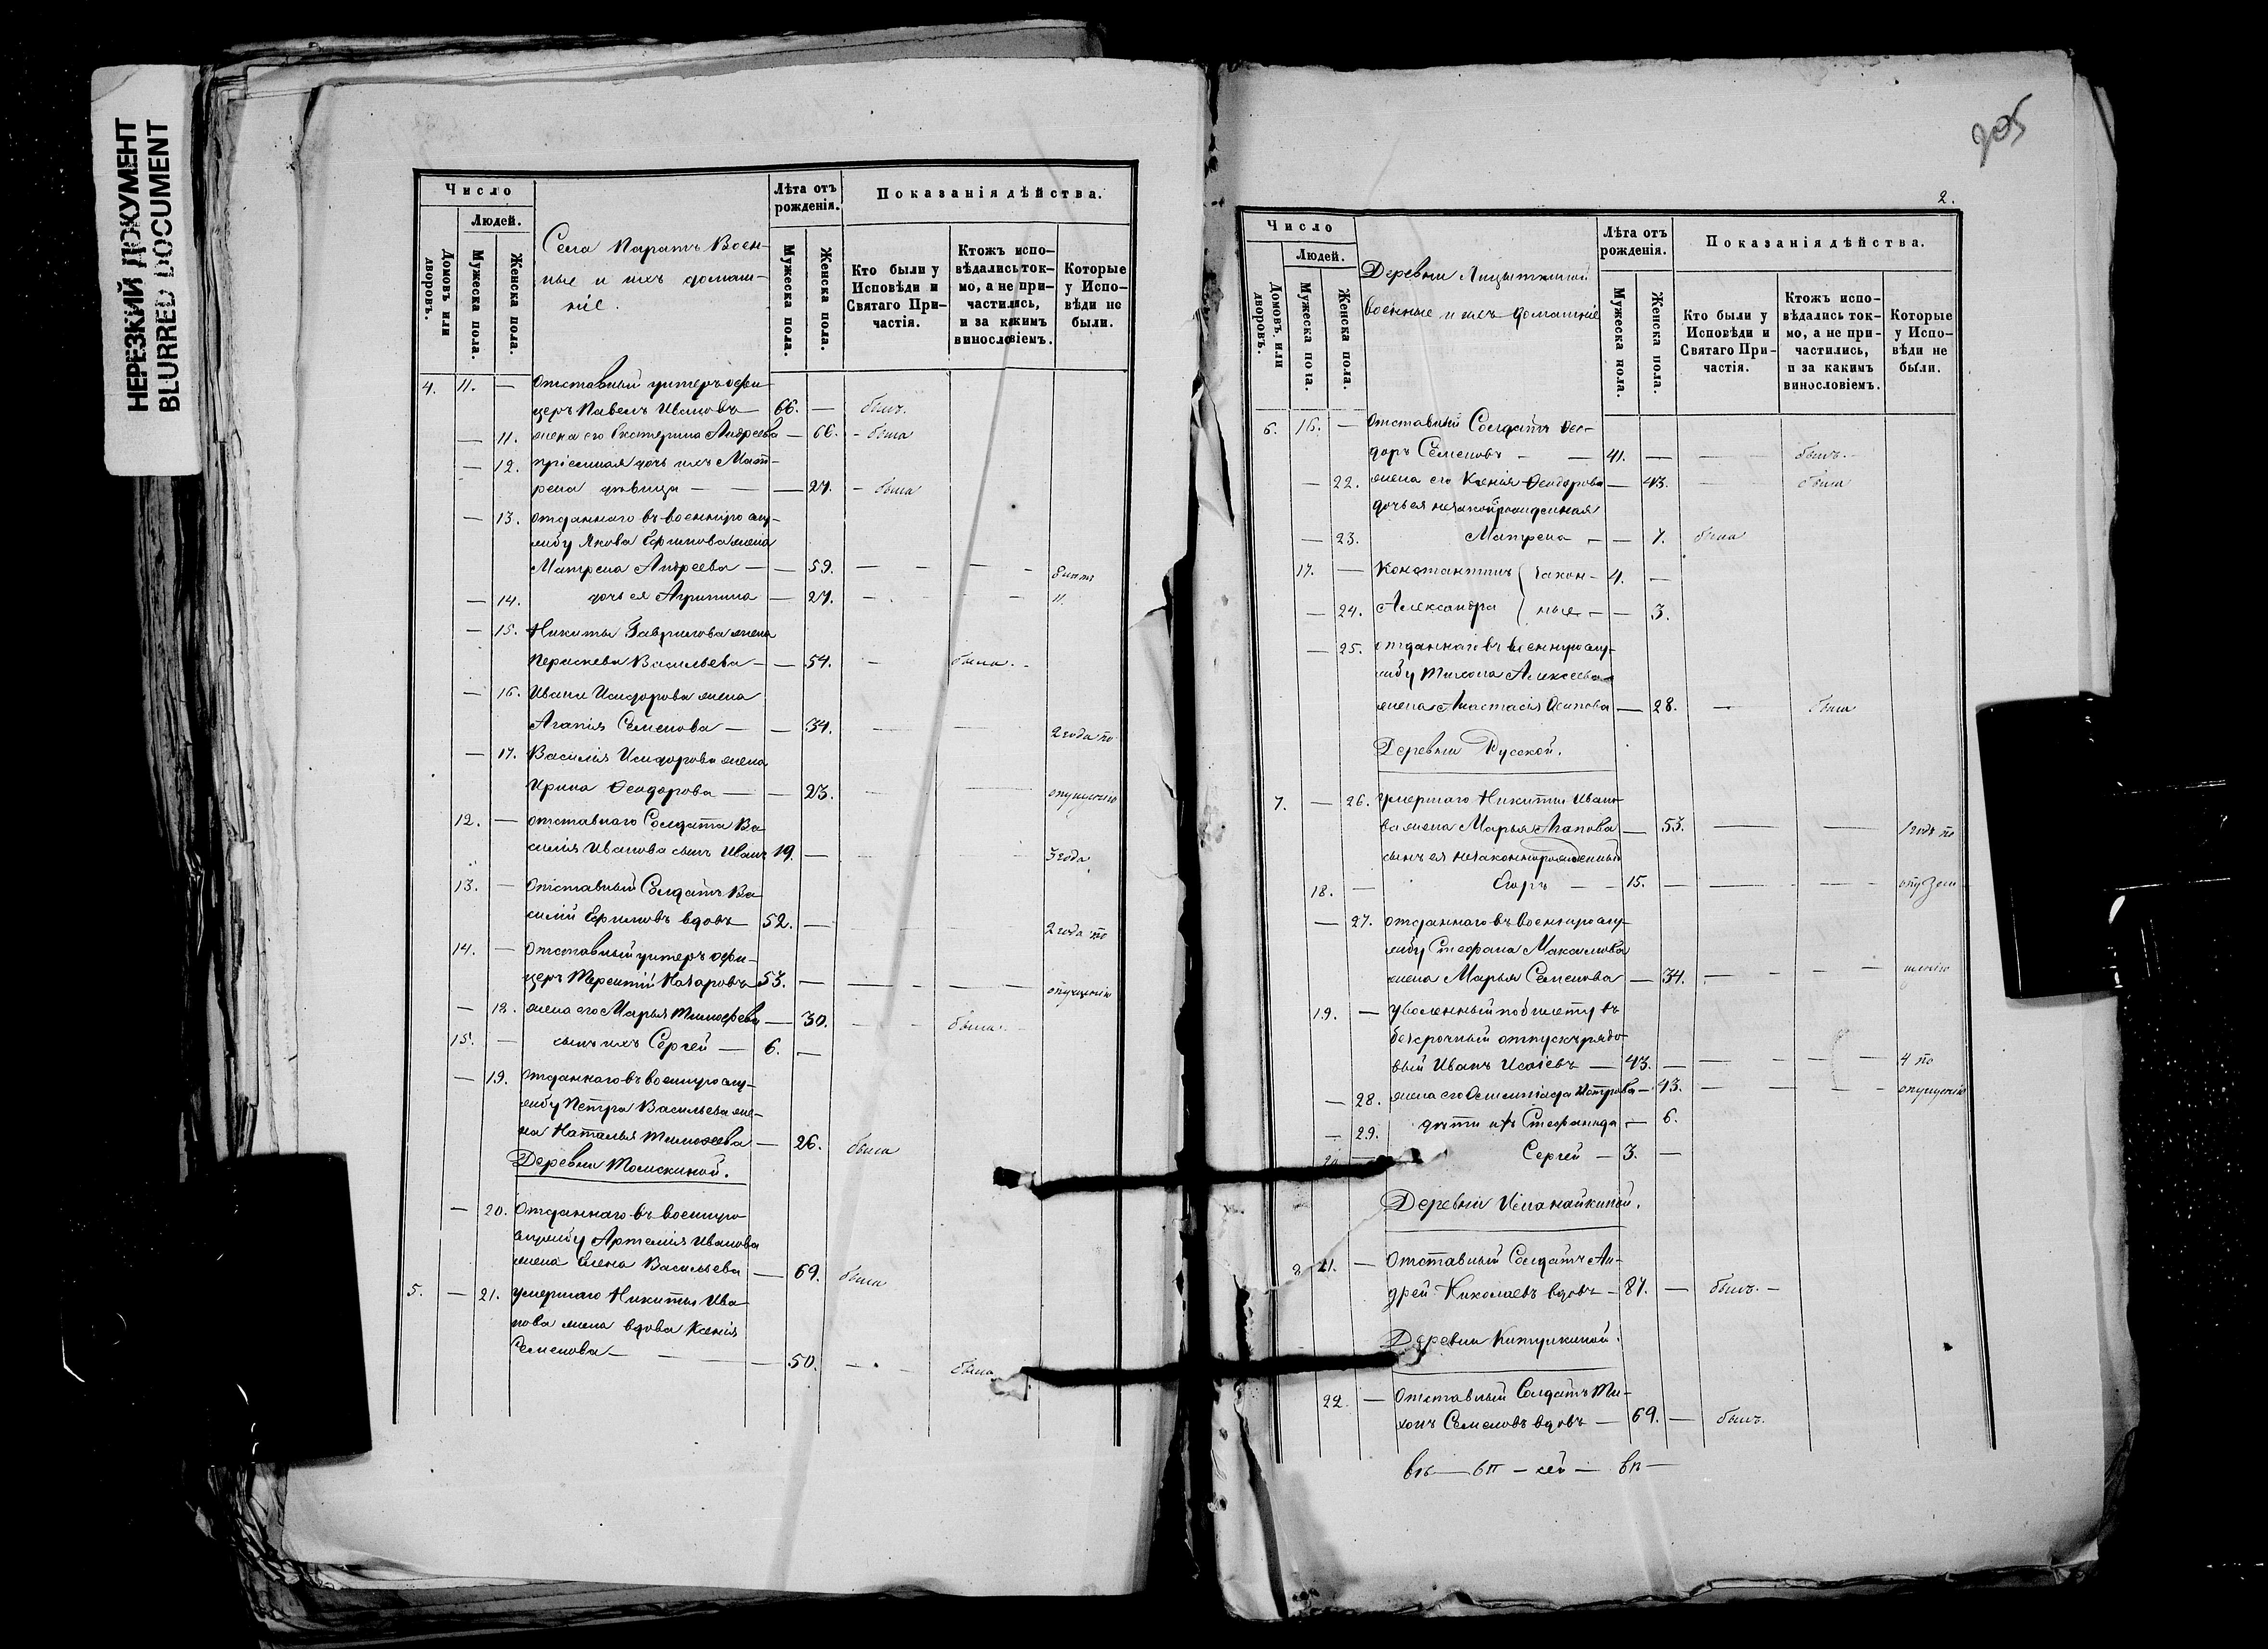 НЕРЕЗКИЙ ДОКУМЕНТ
BLURRED DOCUMENT
Число
Людей.
Домовъ или дворовъ.
Мужеска пола.
Женска пола.
Села Паратъ Воен-
ные и ихъ домаш-
ніе.
Лѣта отъ рожденія.
Мужеска пола.
Женска пола.
Показанія дѣйства.
Кто были у Исповѣди и Святаго Причастія.
Ктожъ исповѣдались токмо, а не причастились, и за какимъ винословіемъ.
Которые у Исповѣди не были.
4. 11. — Отставный унтеръ офи-
церъ Павелъ Ивановъ 66. — былъ.
— 11. жена его Екатерина Андреева — 66. — была
— 12. пріемная дочь ихъ Мат-
рена дѣвица — — 27. — была
— 13. отданнаго въ военную слу-
жбу Якова Ефимова жена
Матрена Андреева — — 59. — — — —
— 14. дочь ея Агрипина — 27. — — — 11.
— 15. Никиты Гаврилова жена
Параскева Васильева — — 54. — была. —
— 16. Ивана Исидорова жена
Агапія Семенова — — 34. — — 2 года по
— 17. Василія Исидорова жена
Ирина Феодорова — — 23. — — опущенію
12. — отставнаго Солдата Ва-
силія Иванова сынъ Иванъ 19. — — — — 3 года
13. — Отставный Солдатъ Ва-
силій Ефимовъ вдовъ 52. — — — — 2 года по
14. — Отставный унтеръ офи-
церъ Терентій Назаровъ 53. — — — — опущенію
— 18. жена его Марья Тимофеева — 30. — — была.
15. — сынъ ихъ Сергей — 6. —
— 19. Отданнаго въ военную слу-
жбу Петра Васильева же-
на Наталья Тимофеева — 26. была
Деревни
— 20. Отданнаго въ военную
службу Артемія Иванова
жена Елена Васильева — 69. была
5. — 21. умершаго Никиты Ива-
нова жена вдова Ксенія
Семенова — — — 50. — — была
205
2.
Число
Людей.
Домовъ или дворовъ.
Мужеска пола.
Женска пола.
Деревни
военные и ихъ домашніе
Лѣта отъ рожденія.
Мужеска пола.
Женска пола.
Показанія дѣйства.
Кто были у Исповѣди и Святаго Причастія.
Ктожъ исповѣдались токмо, а не причастились, и за какимъ винословіемъ.
Которые у Исповѣди не были.
6. 16. — Отставный Солдатъ Фео-
доръ Семеновъ — — 41. — — былъ. —
— 22. жена его Ксенія Феодорова — 43. — была
дочь ея незаконорожденная
— 23. Матрена — — 7. была
17. — Константинъ закон- 4. —
— 24. Александра ные — — 3.
— 25. отданнаго въ военную слу-
жбу Тихона Алексеева
жена Анастасія Осипова — 28. — была
Деревни Русской.
7. — 26. умершаго Никиты Ивано-
ва жена Марья Агапова — 53. — — 1 годъ по
сынъ ея незаконнорожденный
18. — Егоръ — — 15. — — — —
— 27. отданнаго въ военную слу-
жбу Стефана Максимова
жена Марья Семенова — 34. — — — —
19. — уволенный по билету въ
безсрочный отпускъ рядо-
вый Иванъ Исаіевъ — 43. — — — — — 4 по
— 28. жена его Петрова — 43. — — — опущенію
— 29. дѣти ихъ Стефанида — 6.
20. — Сергей — 3. —
Деревни
8. 21. — Отставный Солдатъ Ан-
дрей Николаевъ вдовъ — 87. — былъ. —
Деревни
22. — Отставный Солдатъ Ти-
хонъ Семеновъ вдовъ — 69. — былъ.